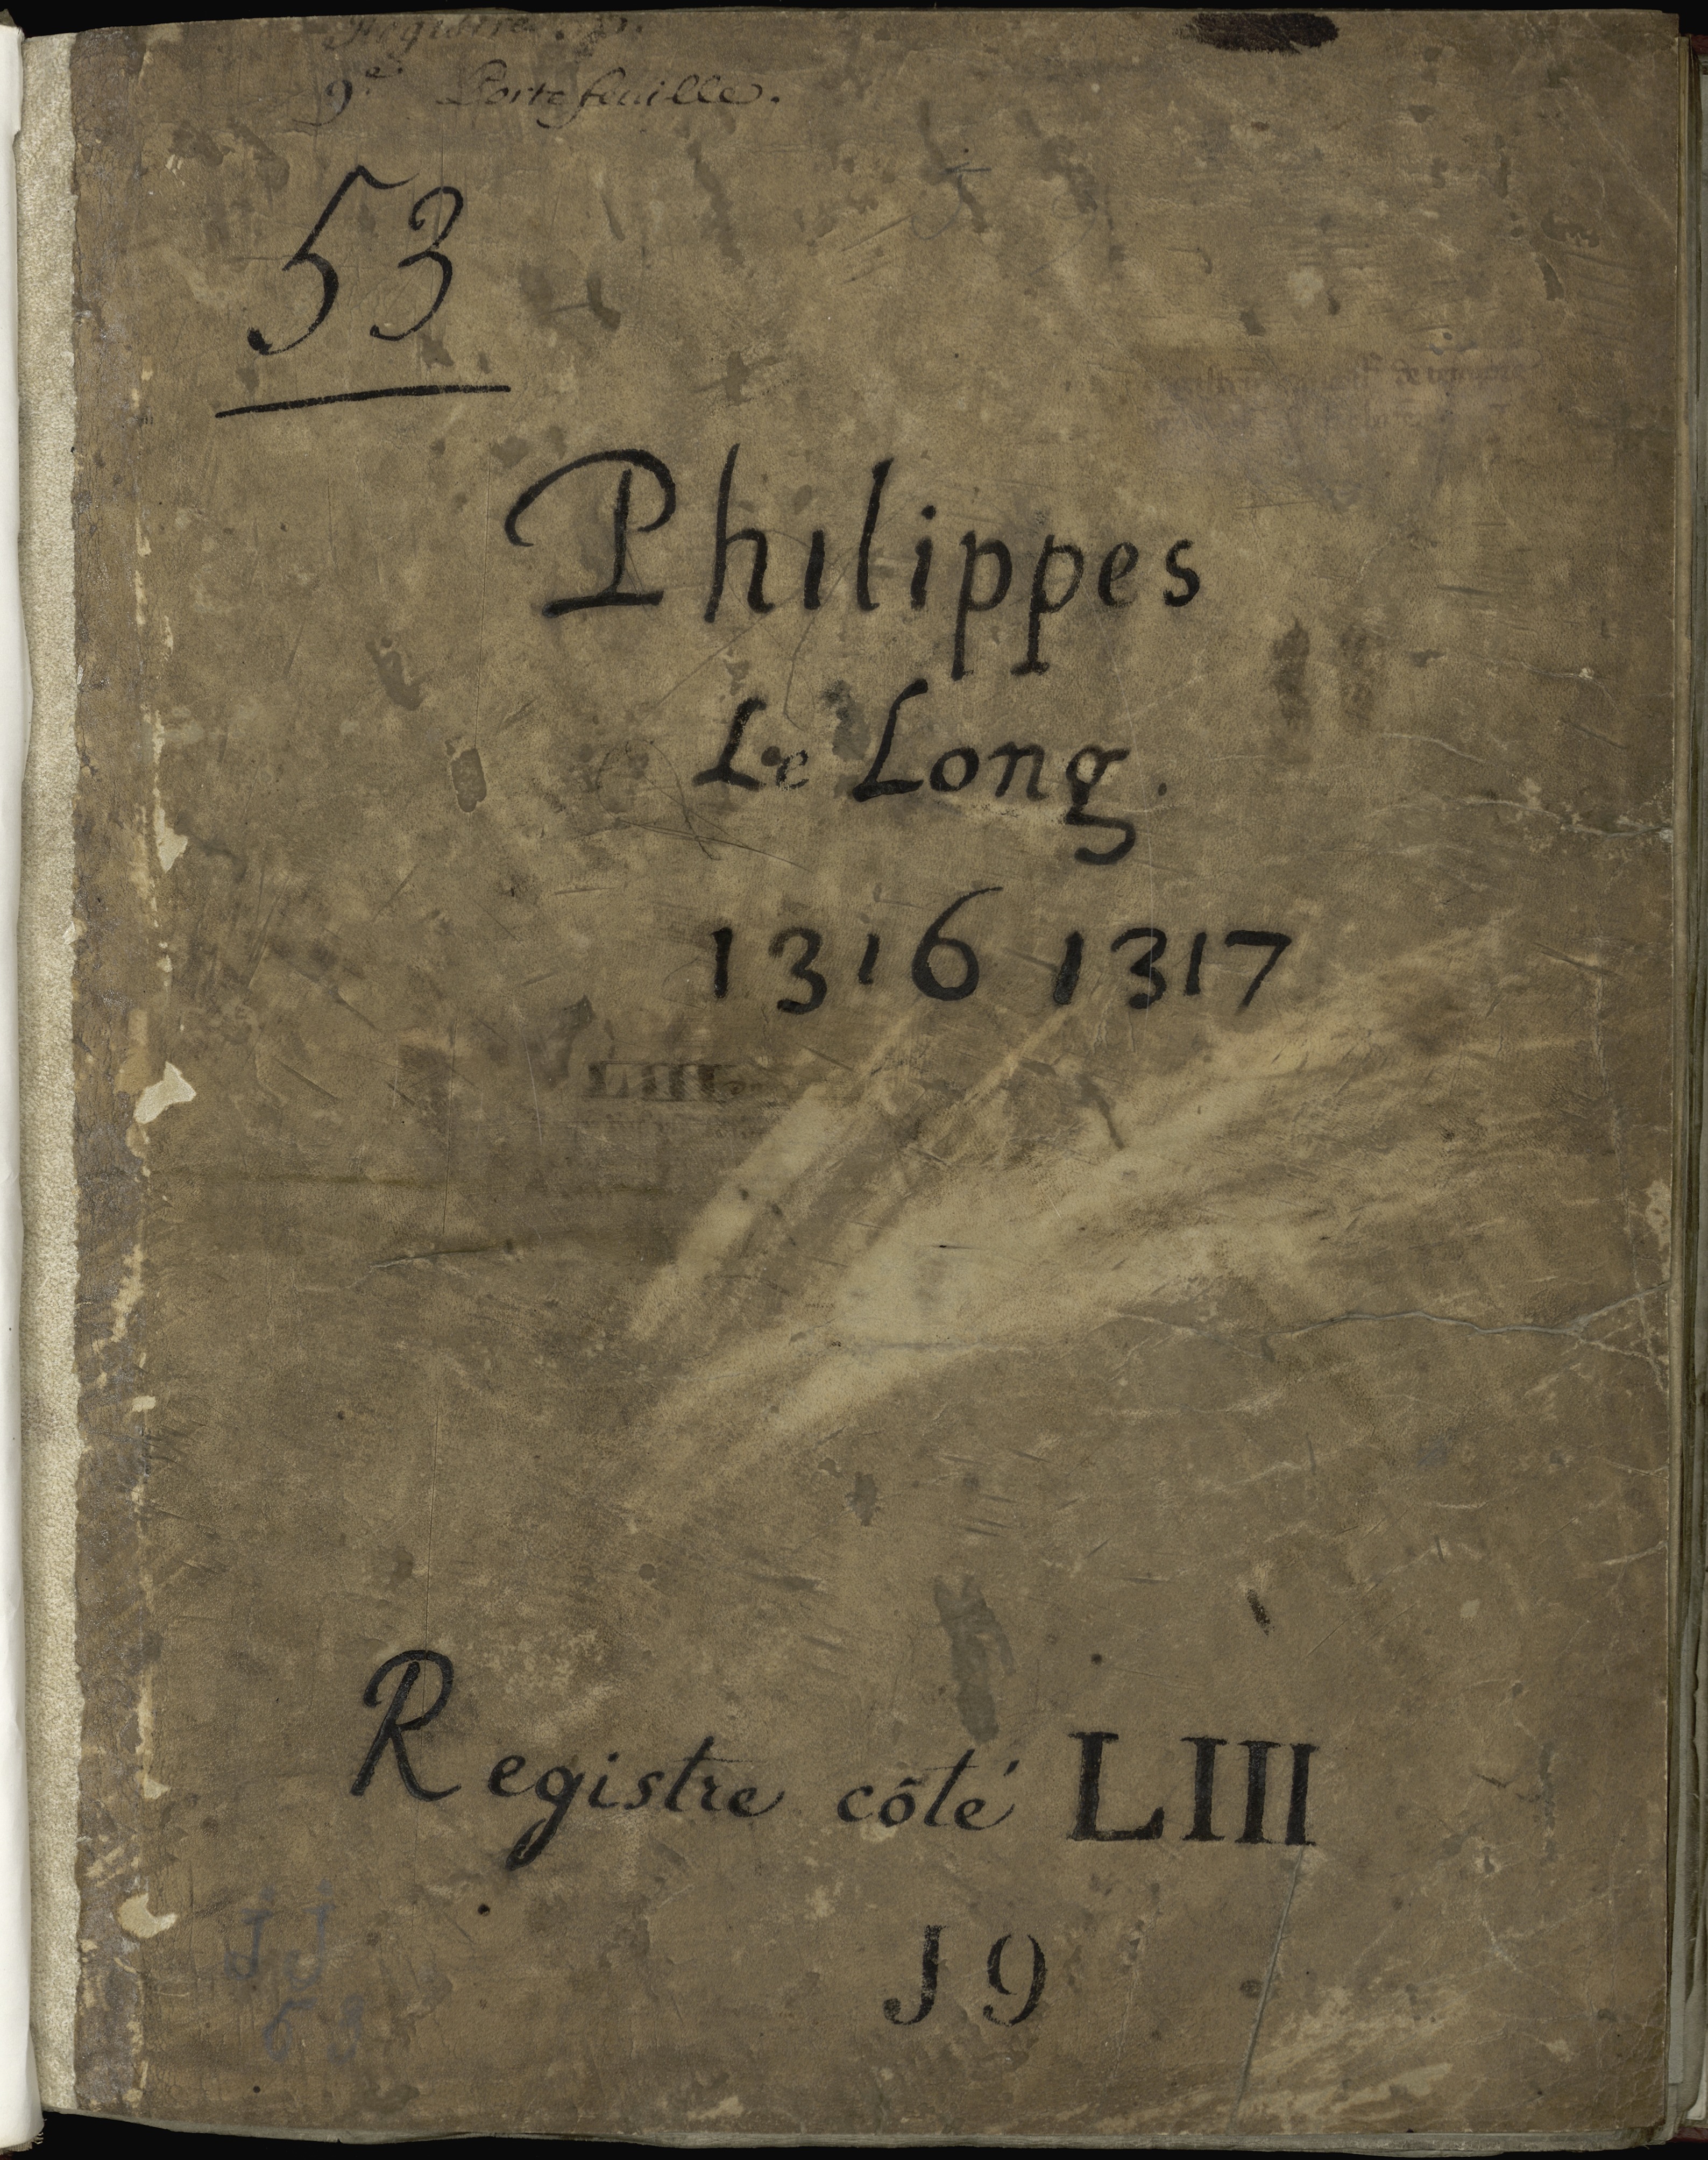 9e. Portefeuille.
53
Philippes
Le Long.
1316 1317
Registre côté LIII
J 9
JJ
53